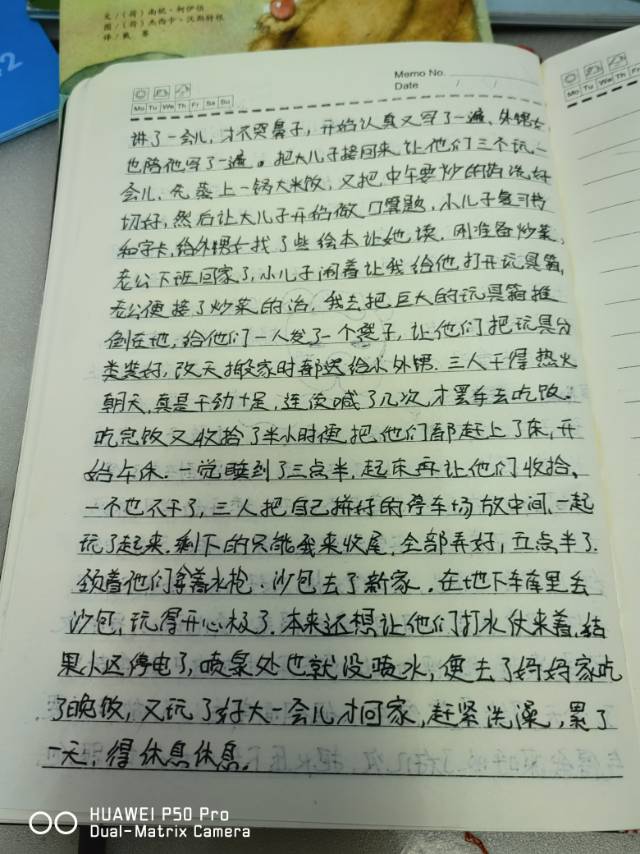 文/（荷）南妮·柯伊伯
图/（荷）杰西卡·沃斯特根
译/戴
2
Memo No.
Date / /
Mo Tu We Th Fr Sa Su
Mo Tu We
讲了一会儿，才不哭鼻子，开始认真又写了一遍，外甥女
也陪他写了一遍。把大儿子接回来，让他们三个玩一
会儿，先蒸上一锅大米饭，又把中午要炒的菜洗好
切好，然后让大儿子开始做口算题，小儿子复习
和字卡，给外甥女找了些绘本让她读。刚准备炒菜，
老公下班回家了，小儿子闹着让我给他打开玩具箱，
老公便接了炒菜的活，我去把巨大的玩具箱推
倒在地，给他们一人发了一个凳子，让他们把玩具分
类装好，改天搬家时都送给小外甥。三人干得热火
朝天，真是干劲十足，连续喊了几次才罢手去吃饭。
吃完饭又收拾了半小时便把他们都赶上了床，开
始午休。一觉睡到了三点半，起床再让他们收拾，
一个也不干了，三人把自己拼好的停车场放中间，一起
玩了起来。剩下的只能我来收尾，全部弄好，五点半了。
领着他们拿着水枪、沙包去了新家。在地下车库里丢
沙包，玩得开心极了。本来还想让他们打水仗来着，结
果小区停电了，喷泉处也就没喷水，便去了妈妈家吃
了晚饭，又玩了好大一会儿才回家，赶紧洗澡，累了
一天，得休息休息。
HUAWEI P50 Pro
Dual-Matrix Camera